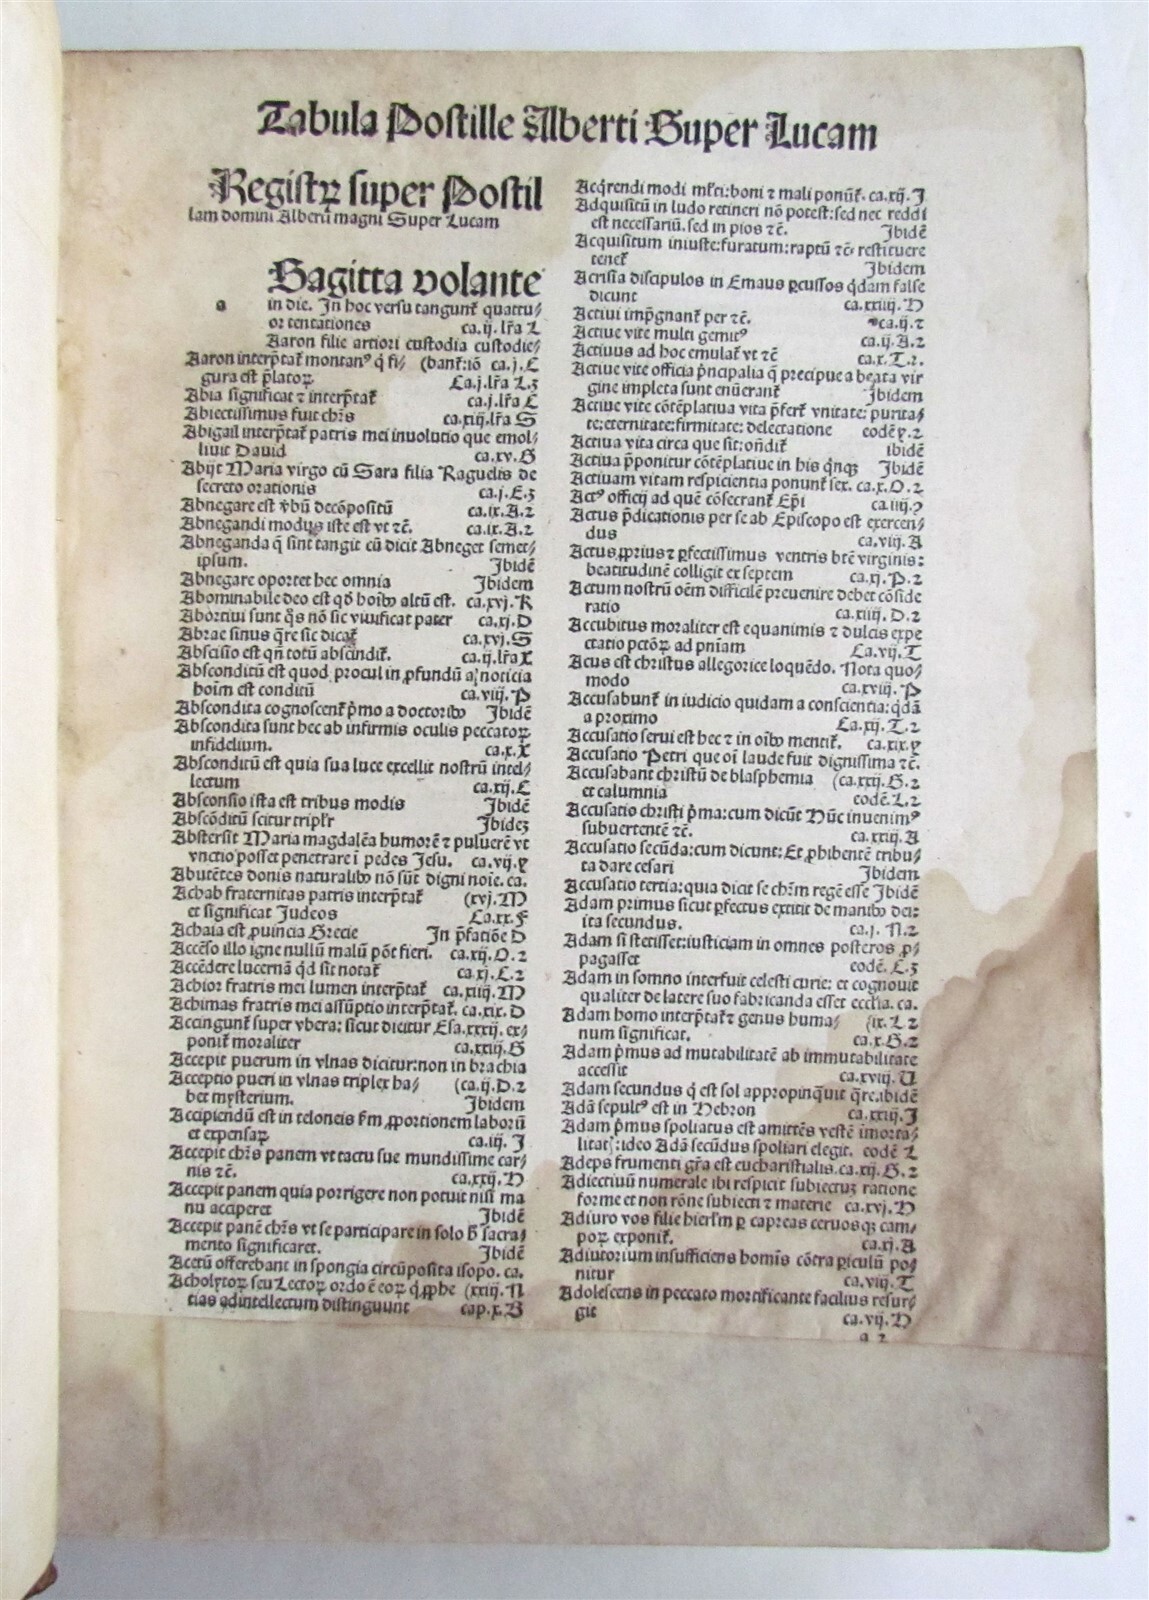 Tabula Postille Alberti Super Lucam
Registꝝ super Postil
lam domini Alberti magni Super Lucam
Sagitta volante
a in die. In hoc versu tangunt᷑ quattu⸗
or tentationes ca.ij.lr̃a L
Aaron filie artiori custodia custodie⸗
Aaron interp̃tat᷑ montanꝰ q̃ fi⸗ (bant᷑:iõ ca.j.C
gura est p̃latoꝝ Ca.j.lr̃a Z.3
Abia significat ⁊ interp̃tat᷑ ca.j.lr̃a C
Abiectissimus fuit chr̃s ca.xiij.lr̃a S
Abigail interp̃tat᷑ patris mei inuolutio que emol⸗
liuit Dauid ca.xv.G
Abijt Maria virgo cũ Sara filia Raguelis de
secreto orationis ca.j.E.3
Abnegare est v̓bũ decõpositũ ca.ix.A.2
Abnegandi modus iste est vt ⁊c̃. ca.ix.A.2
Abneganda q̃ sint tangit cũ dicit Abneget semet⸗
ipsum. Ibidẽ
Abnegare oportet hec omnia Ibidem
Abominabile deo est qđ hoĩbꝰ altũ est. ca.xvj.K
Abortiui sunt q̃s nõ sic viuificat pater ca.xj.D
Abrae sinus q̃re sic dicat᷑ ca.xvj.S
Absciso est qñ totũ abscindit᷑. ca.ij.lr̃a X
Absconditũ est quod procul in ꝓfundũ a noticia
hoĩm est conditũ ca.viij.P
Abscondita cognoscent᷑ p̃mo a doctoribꝰ Ibidẽ
Abscondita sunt hec ab infirmis oculis peccatoꝝ
infidelium. ca.x.X
Absconditũ est quia sua luce excellit nostrũ intel⸗
lectum ca.xij.C
Absconsio ista est tribus modis Ibidẽ
Abscõditũ scitur tripl'r Ibideꝫ
Abstersit Maria magdalẽa humorẽ ⁊ puluerẽ vt
vnctio posset penetrare ĩ pedes Jesu. ca.vij.y
Abutẽtes donis naturalibꝰ nõ sũt digni noĩe. ca.
Achab fraternitas patris interp̃tat᷑ (xvj.M
et significat Judeos Ca.xx.F
Achaia est ꝓuincia Grecie In p̃fatiõe D
Accẽso illo igne nullũ malũ põt fieri. ca.xij.O.2
Accẽdere lucernã q̃d sit notat᷑ ca.xj.C.2
Achior fratris mei lumen interp̃tat᷑ ca.xiij.M
Achimas fratris mei assũptio interp̃tat᷑. ca.xix.D
Accingunt᷑ super vbera: sicut dicitur Esa.xxxij. ex⸗
ponit᷑ moraliter ca.xxiij.G
Accepit puerum in vlnas dicitur:non in brachia
Acceptio pueri in vlnas triplex ha⸗ (ca.ij.D.2
bet mysterium. Ibidem
Accipiendũ est in teloneis s̃m ꝓportionem laborũ
et expensaꝝ ca.iij.I
Accepit chr̃s panem vt tactu sue mundissime car⸗
nis ⁊c̃. ca.xxij.H
Accepit panem quia porrigere non potuit nisi ma
nu acciperet Ibidẽ
Accepit panẽ chr̃s vt se participare in solo ħ sacra⸗
mento significaret. Ibidẽ
Acetũ offerebant in spongia circũposita isopo. ca.
Acholytoꝝ seu Lectoꝝ ordo ẽ eoꝝ q̃ ꝓphe (xxiij.N
tias ad intellectum distinguunt cap.x.B
Acq̃rendi modi ml̃ti:boni ⁊ mali ponũt᷑. ca.xij.I
Adquisitũ in ludo retineri nõ potest:sed nec reddi
est necessariũ.sed in pios ⁊c̃. Ibidẽ
Acquisitum iniuste:furatum:raptũ ⁊c̃ restituere
tenet᷑ Ibidem
Acrisia discipulos in Emaus ꝑcussos q̃dam false
dicunt ca.xxiiij.H
Actiui imp̃gnant᷑ per ⁊c̃. ca.ij.2
Actiue vite multi gemitꝰ ca.ij.A.2
Actiuus ad hoc emulat᷑ vt ⁊c̃ ca.x.T.2.
Actiue vite officia p̃ncipalia q̃ precipue a beata vir
gine impleta sunt enũerant᷑ Ibidem
Actiue vite cõtẽplatiua vita p̃fert᷑ vnitate: purita⸗
te:eternitate:firmitate: delectatione eodẽ y.2
Actiua vita circa que sit:oñdit᷑ ibidẽ
Actiua p̃ponitur cõtẽplatiue in his q̃nqꝫ Ibidẽ
Actiuam vitam respicientia ponunt᷑ sex. ca.x.O.2
Actꝰ officij ad quẽ cõsecrant᷑ Ep̃i ca.iiij.
Actus p̃dicationis per se ab Episcopo est exercen⸗
dus ca.viij.A
Actus ꝓprius ⁊ ꝑfectissimus ventris bt̃e virginis:
beatitudinẽ colligit ex septem ca.xj.P.2
Actum nostrũ oẽm difficilẽ preuenire debet cõside
ratio ca.xiiij.D.2
Accubitus moraliter est equanimis ⁊ dulcis expe
ctatio pctõꝝ ad pñiam Ca.vij.T
Acus est christus allegorice loquẽdo. Nota quo⸗
modo ca.xviij.P
Accusabunt᷑ in iudicio quidam a conscientia:q̃dã
a proximo Ca.xij.T.2
Accusatio serui est hec ⁊ in oĩbꝰ mentit᷑. ca.xix.y
Accusatio Petri que oĩ laude fuit dignissima ⁊c̃.
Accusabant christũ de blasphemia (ca.xxij.G.2
et calumnia eodẽ.L.2
Accusatio christi p̃ma:cum dicũt Hũc inuenimꝰ
subuertentẽ ⁊c̃. ca.xxiij.A
Accusatio secũda:cum dicunt:Et ꝓhibentẽ tribu⸗
ta dare cesari Ibidem
Accusatio tertia:quia dicit se chr̃m regẽ esse Ibidẽ
Adam primus sicut ꝑfectus extitit de manibꝰ dei:
ita secundus. ca.j.N.2
Adam si stetisset:iusticiam in omnes posteros ꝓ⸗
pagasset eodẽ.E.3
Adam in somno interfuit celesti curie: et cognouit
qualiter de latere suo fabricanda esset eccl̃ia. ca.
Adam homo interp̃tat᷑ ⁊ genus huma⸗ (ix.L 2
num significat. ca.x.G.2
Adam p̃mus ad mutabilitatẽ ab immutabilitate
accessit ca.xviij.U
Adam secundus q̃ est sol appropinq̃uit q̃re.ibidẽ
Adã sepultꝰ est in Hebron ca.xxiij.I
Adam p̃mus spoliatus est amittẽs vestẽ ĩmorta⸗
litat᷑:ideo Adã secũdus spoliari elegit. eodẽ L
Adeps frumenti gr̃a est eucharistialis.ca.xij.G.2
Adiectiuũ numerale ibi respicit subiectuꝫ ratione
forme et non rõne subiecti ⁊ materie ca.xvj.H
Adiuro vos filie hierl'm ꝑ capreas ceruosqꝫ cam⸗
poꝝ exponit᷑. ca.xj.A
Adiutorium insufficiens homĩs cõtra ꝑiculũ po⸗
nitur ca.viij.T
Adolescens in peccato mortificante facilius resur⸗
git ca.vij.H
a 2